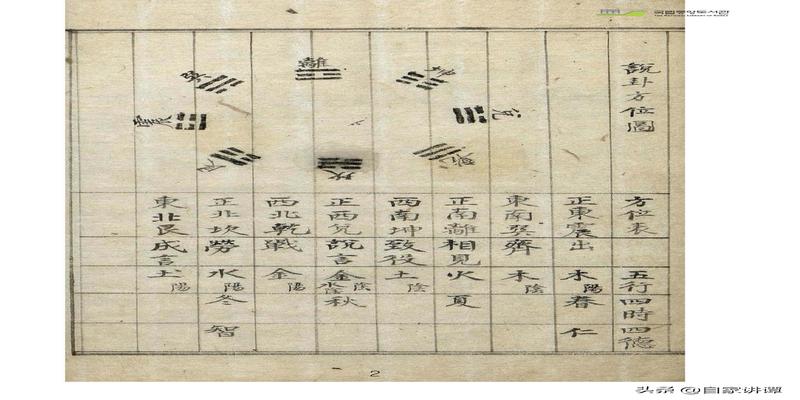 국립중앙도서관
THE NATIONAL LIBRARY OF KOREA
說卦方位圖
離
坤
兌
乾
坎
艮
震
巽
方位表 五行四時四德
正東震出 木陽 春 仁
東南巽齊 木陰
正南離相見 火 夏
西南坤致役 土陰
正西兌說言 金陰 秋
西北乾戰 金陽
正北坎勞 水陽 冬 智
東北艮成言 土陽
2
头条 @自家讲谭